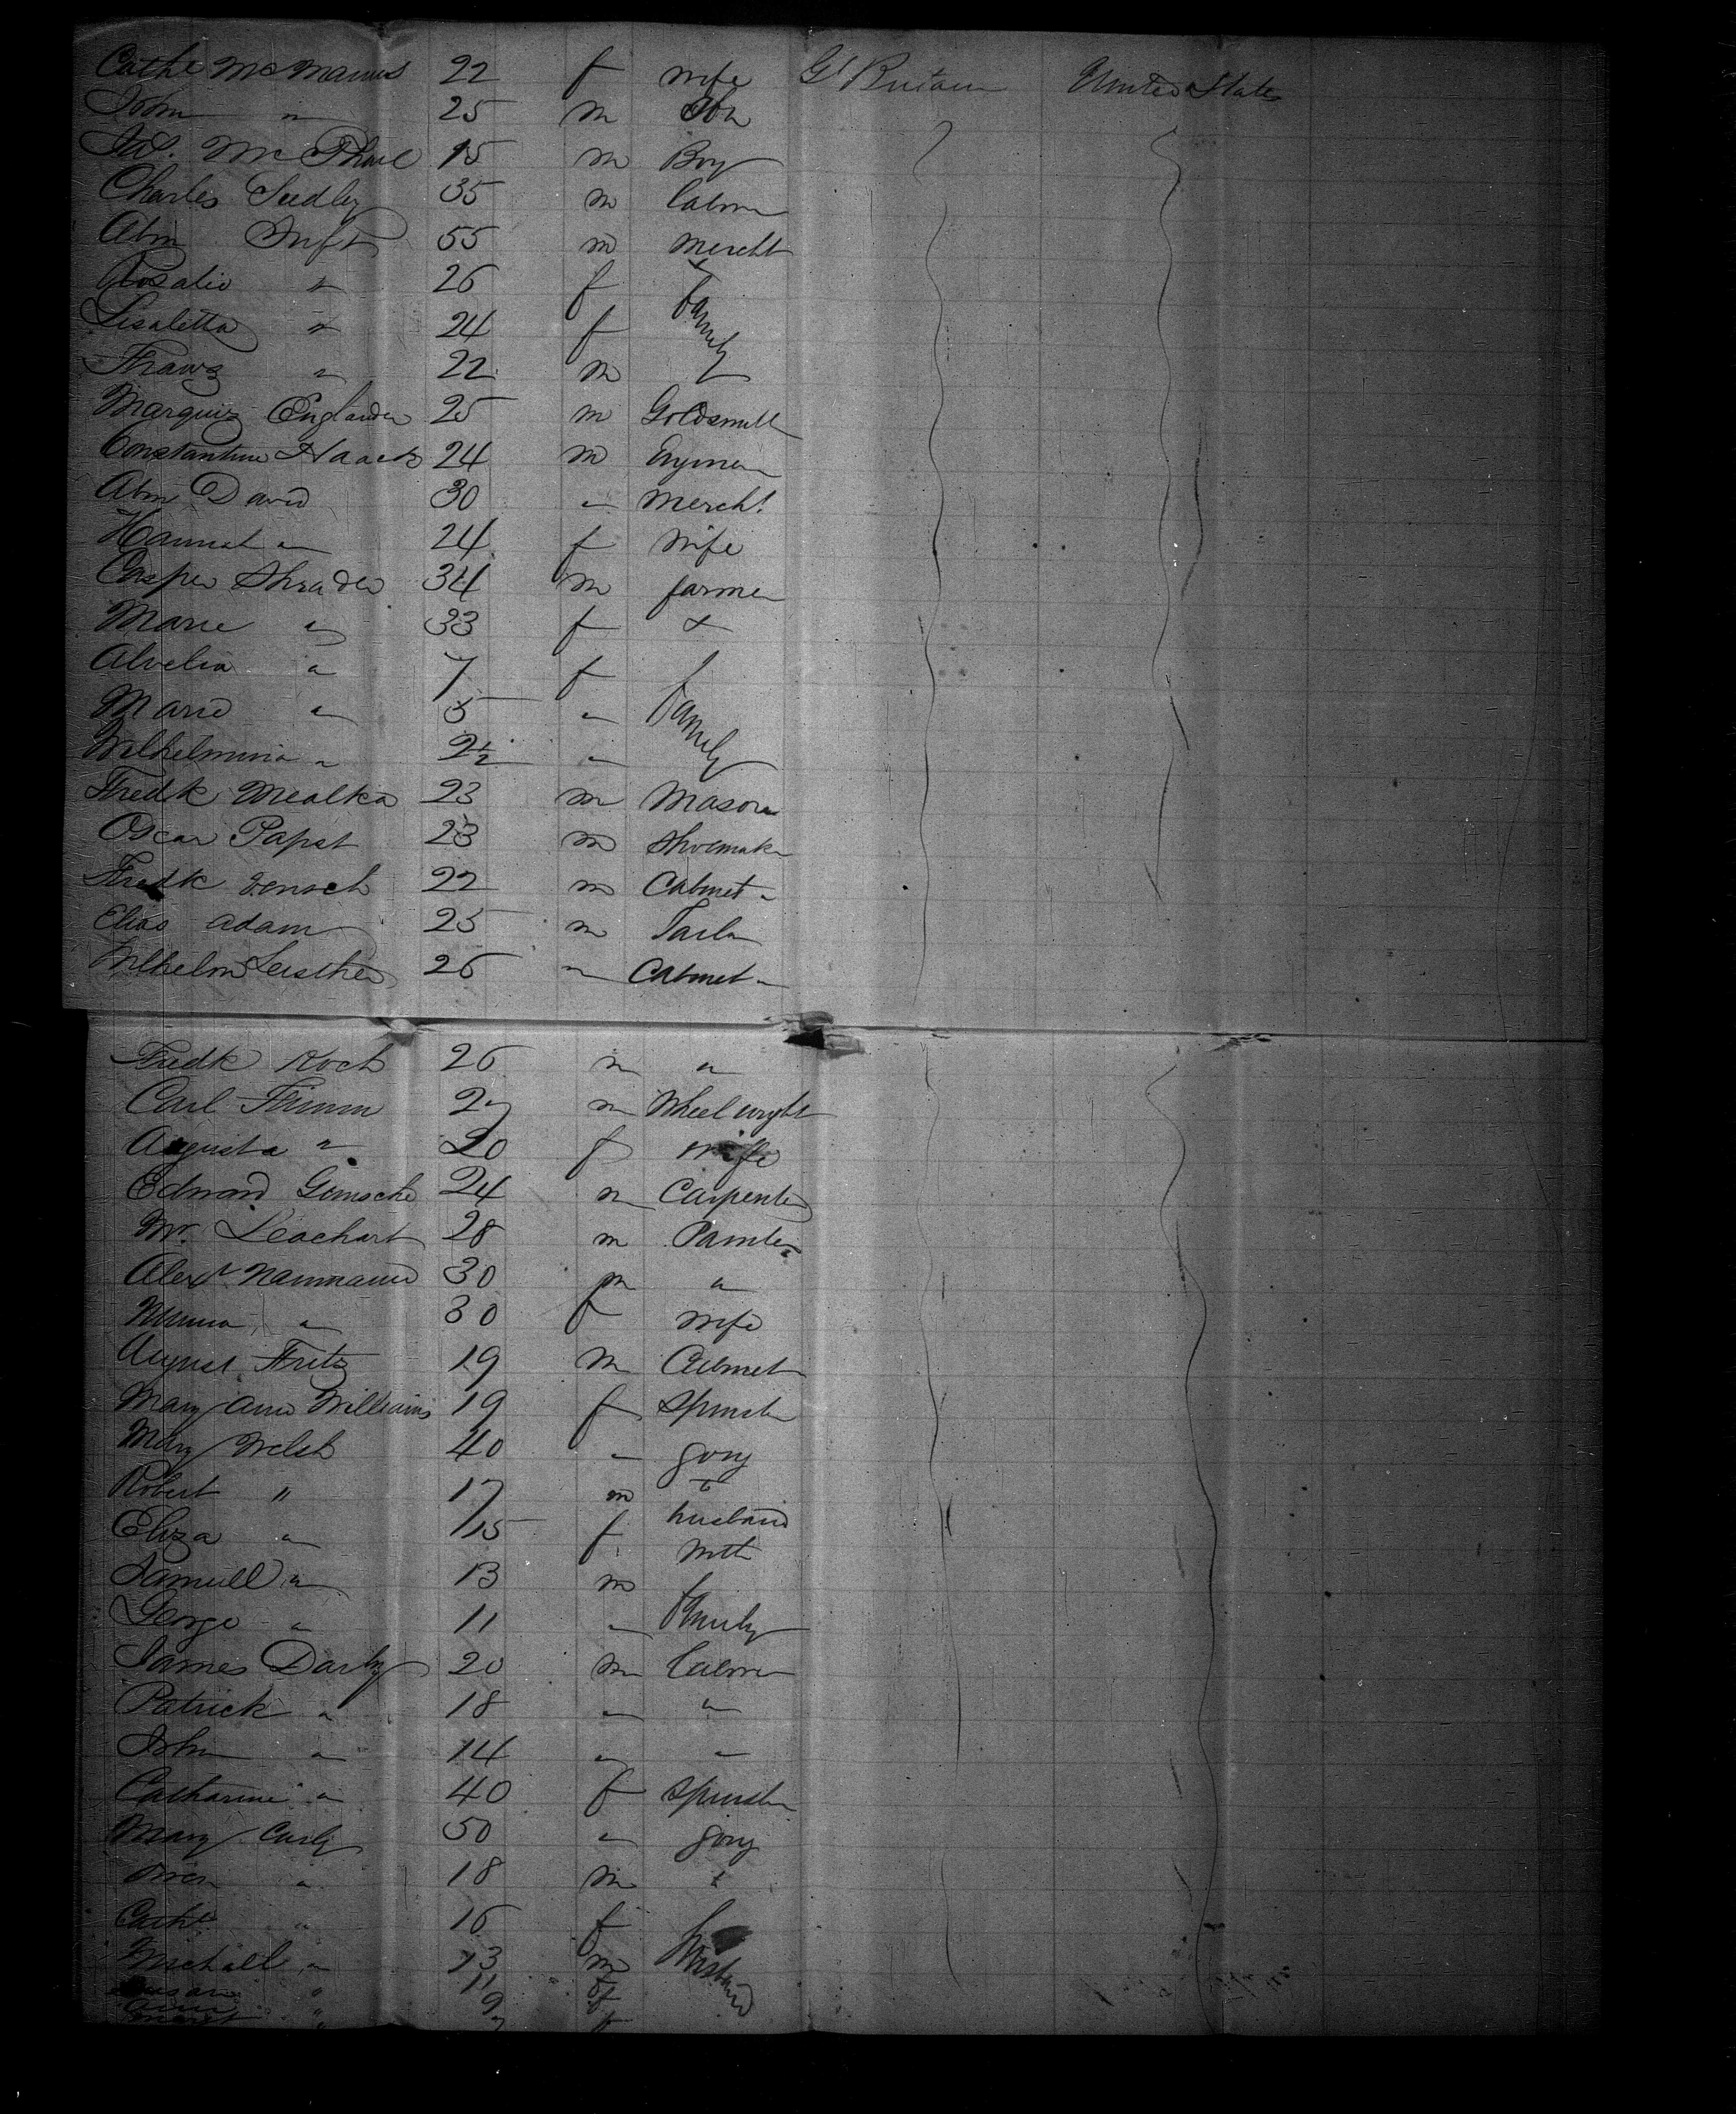 Cathe McManus 22 f wife Gt Britain United States
John " 25 m
Jas. McPhail 15 m Boy
Charles Seedley 35 m Labour
Abm 55 m Mercht
Rosalie " 26 f &
Lisaletta " 24 f family
Franz " 22 m
Marquis Englander 25 m Goldsmith
Constantine Haack 24 m
Abm David 30 " Mercht
Hannah " 24 f wife
Casper Shrader 34 m farmer
Marie " 33 f &
Alvelia " 7 f
Marie " 5 " family
Wilhelmina " 2½ "
Fredk Mealka 23 m Mason
Oscar Papst 23 m Shoemaker
Fredk 22 m Cabinet "
Elias Adam 25 m Tailor
Wilhelm 26 " Cabinet "
Fredk Koch 26 m "
Carl Thimm 27 m Wheelwright
Augusta " 20 f wife
Edward 24 m Carpenter
Wm. Leachart 28 m Painter
Alexr Naumann 30 m "
Minna " 30 f wife
August Fritz 19 m Cabinet
Mary Ann Williams 19 f Spinster
Mary Welsh 40 " going
Robert " 17 m to
Eliza " 15 f husband
Samuell " 13 m with
George " 11 " family
James Darby 20 m Labour
Patrick " 18 " "
John " 14 " "
Catharine " 40 f Spinster
Mary 50 " going
Owen " 18 m to
Cathe " 16 f
Michall " 13 m husband
Susan " 11 f
Ann " 9 f
Margt " 7 f